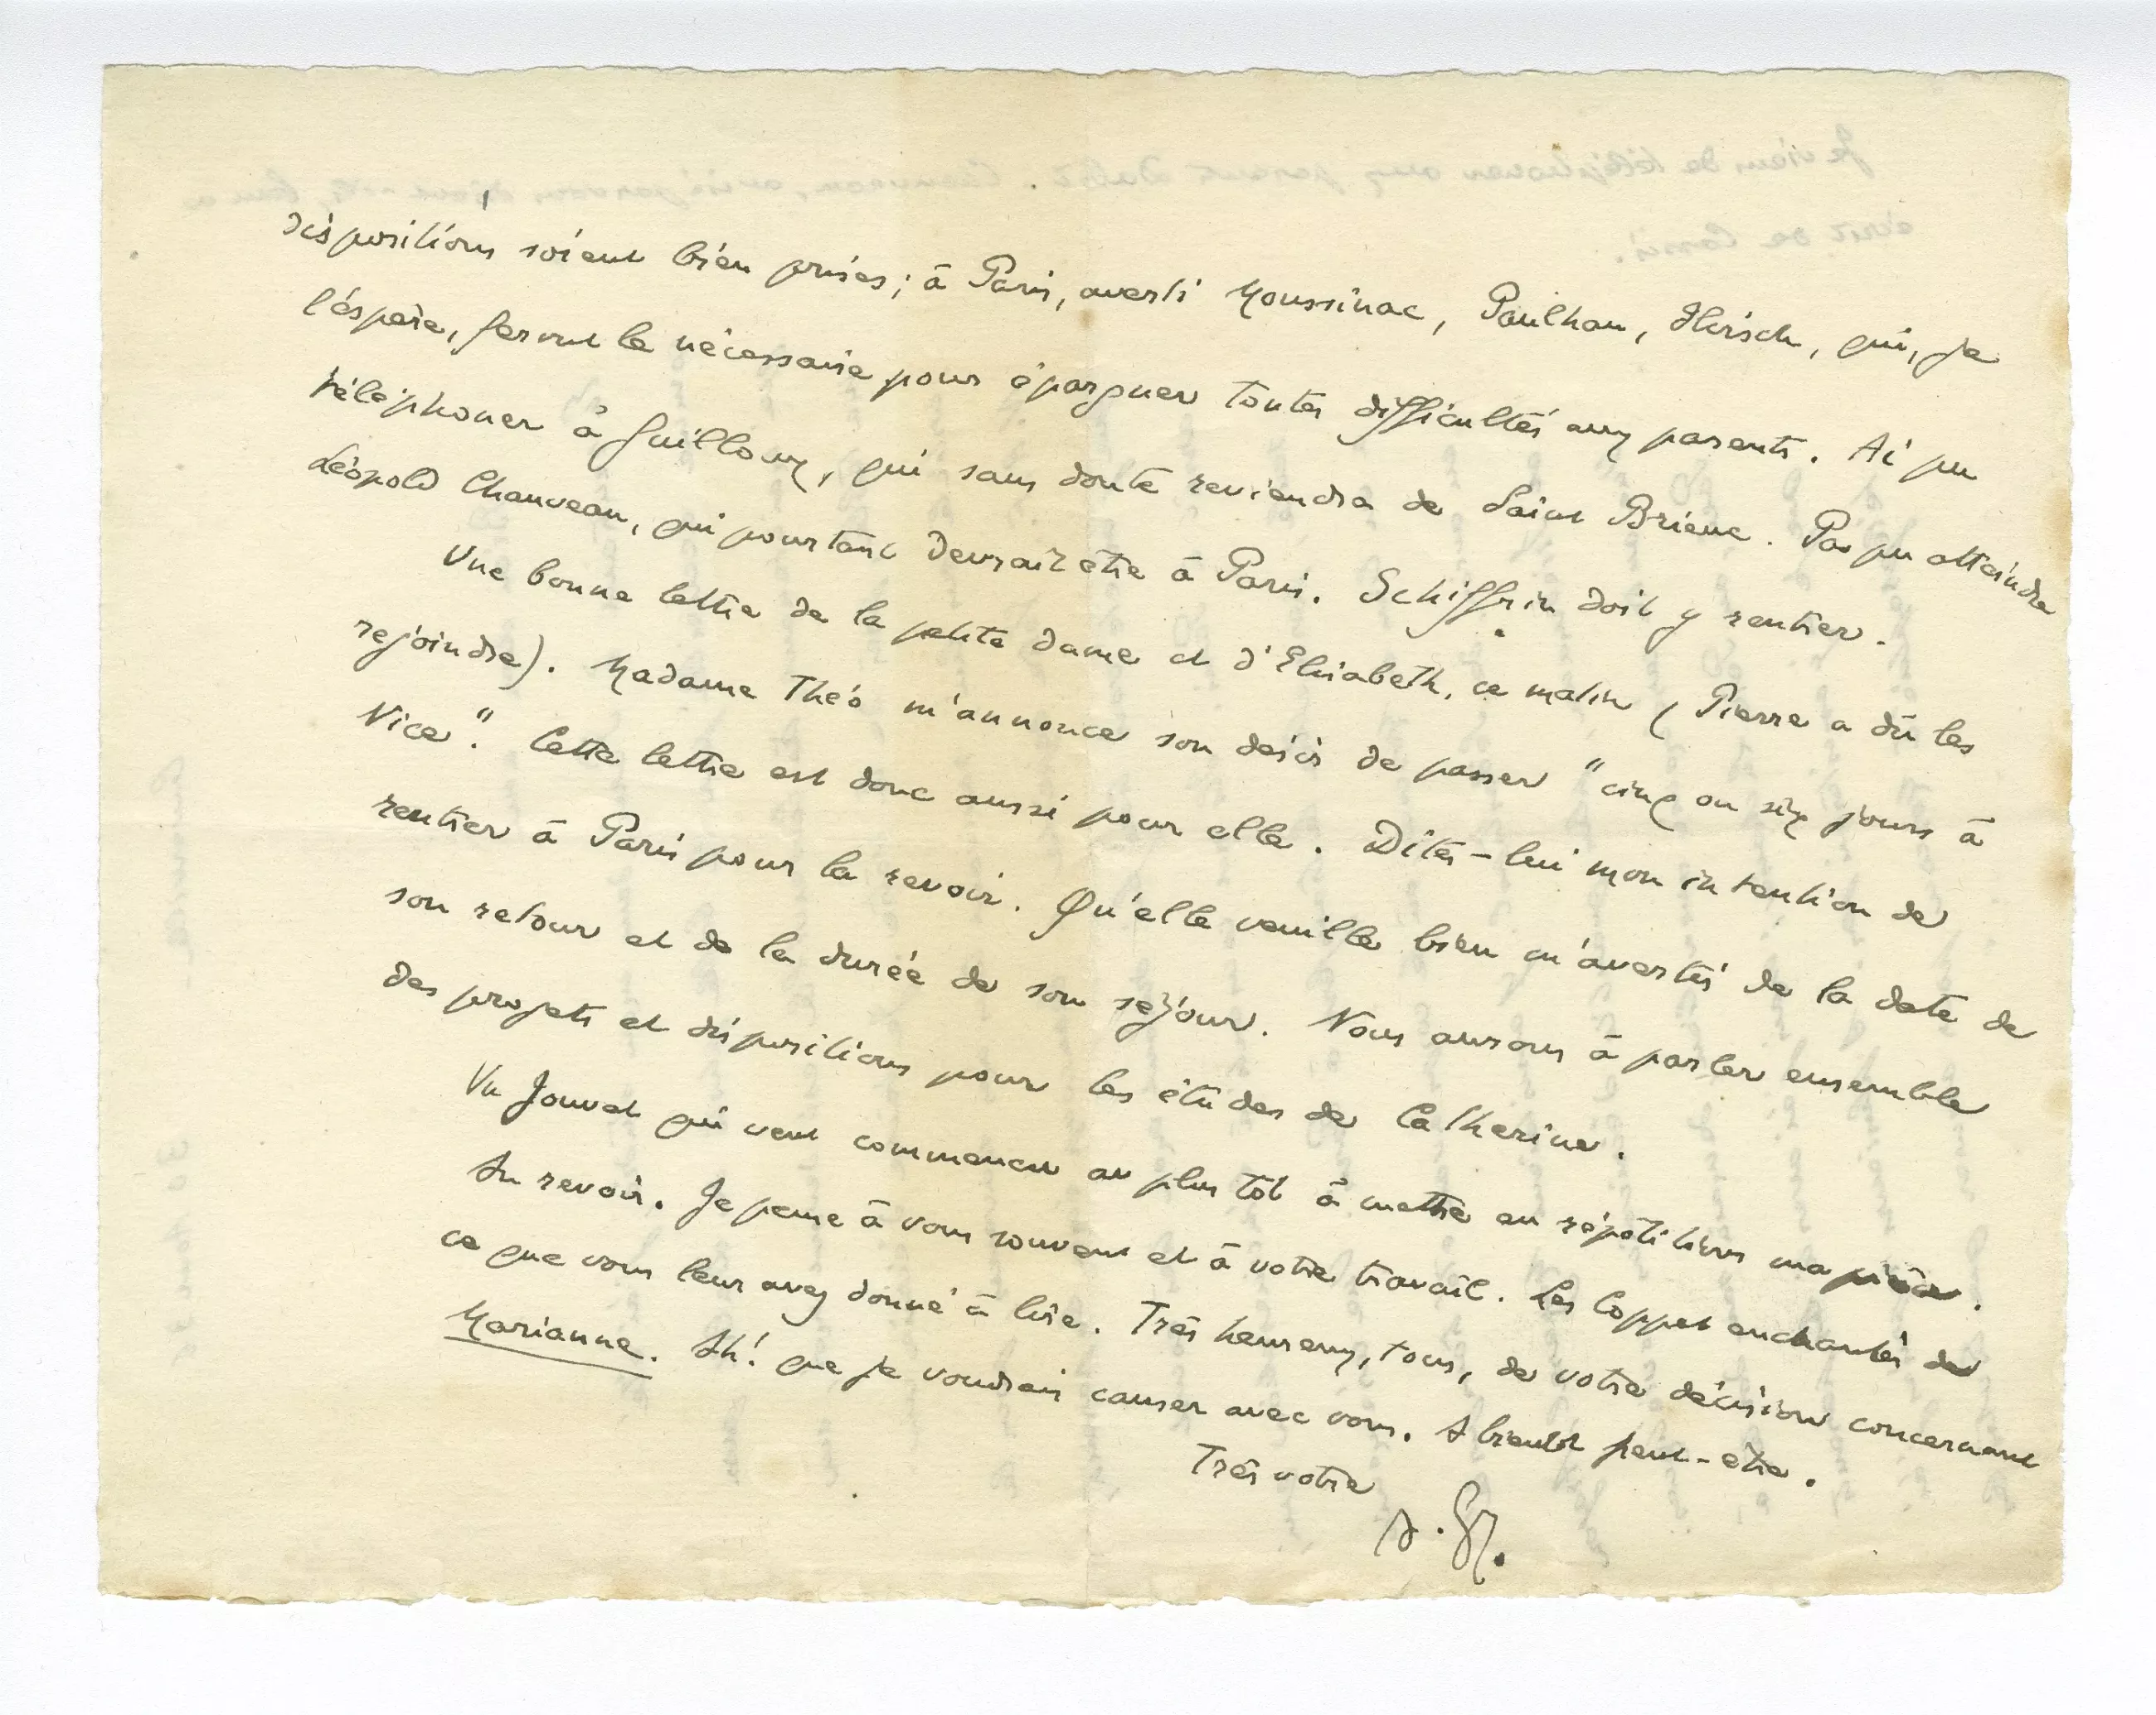 dispositions soient bien prises ; à Paris, averti Moussinac, Paulhan, Hirsch, qui, je
l'espère, feront le nécessaire pour épargner toutes difficultés aux parents. Ai pu
téléphoner à Guilloux, qui sans doute reviendra de Saint Brieuc. Pas pu atteindre
Léopold Chauveau, qui pourtant devrait être à Paris. Schiffrin doit y rentrer.
Une bonne lettre de la petite dame et d'Elisabeth, ce matin (Pierre a dû les
rejoindre). Madame Théo m'annonce son désir de passer "cinq ou six jours à
Nice". Cette lettre est donc aussi pour elle. Dites-lui mon intention de
rentrer à Paris pour la revoir. Qu'elle veuille bien m'avertir de la date de
son retour et de la durée de son séjour. Nous aurons à parler ensemble
des projets et dispositions pour les études de Catherine.
Vu Jouvet qui veut commencer au plus tôt à mettre en répétitions ma pièce.
Au revoir. Je pense à vous souvent et à votre travail. Les Coppet enchantés de
ce que vous leur avez donné à lire. Très heureux, tous, de votre décision concernant
Marianne. Ah! que je voudrais causer avec vous. A bientôt peut-être.
Très votre
A. G.